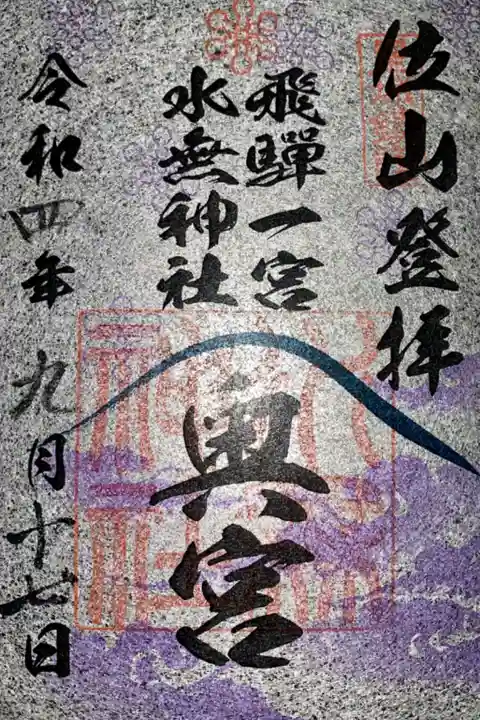 位山登拝
飛騨一宮
水無神社
奥宮
令和四年九月十七日